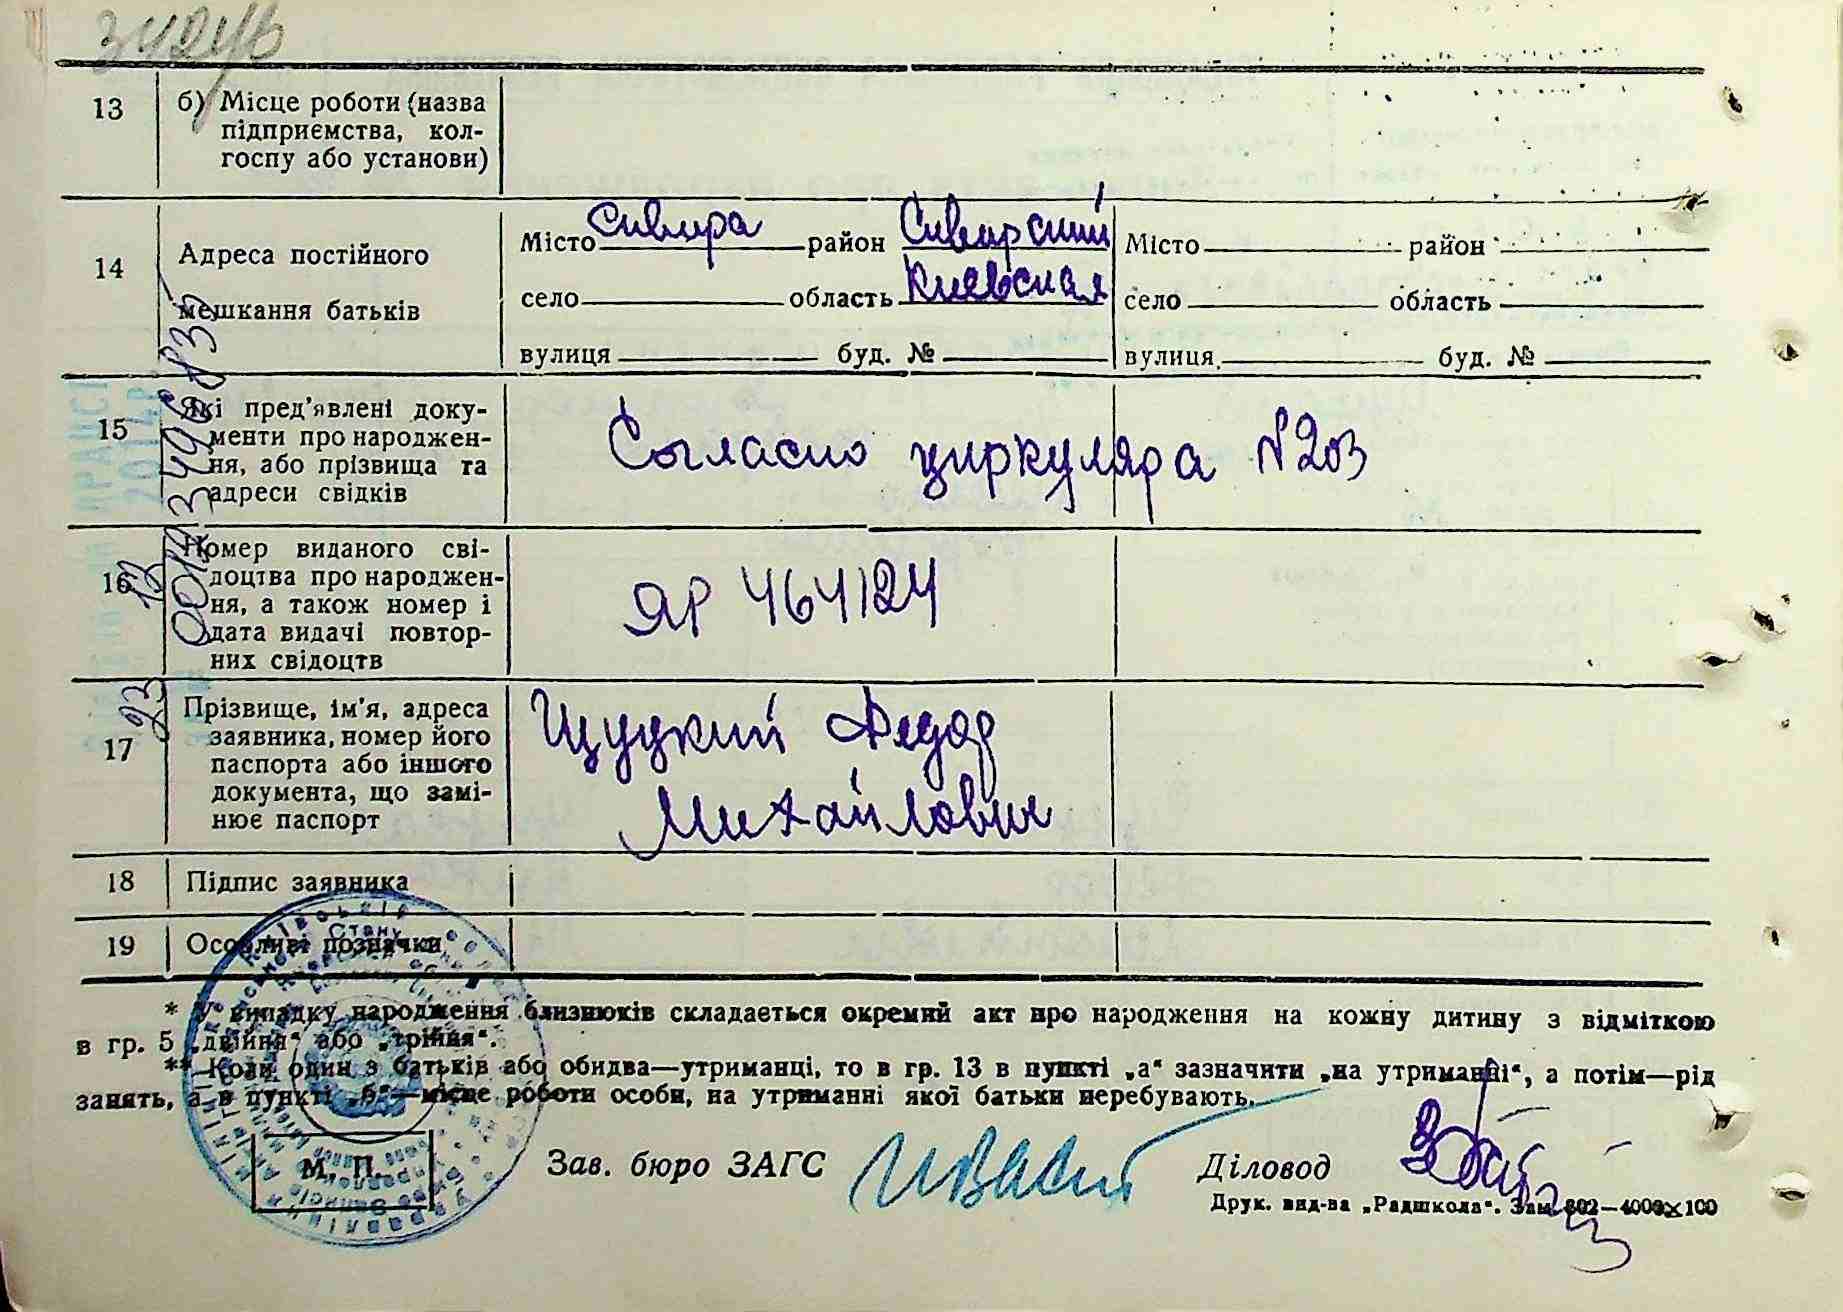 13 б) Місце роботи (назва
підприємства, кол-
госпу або установи)
14 Адреса постійного
мешкання батьків
Місто Сквира район Сквирский
село область Киевская
вулиця буд. №
Місто район
село область
вулиця буд. №
15 Які пред'явлені доку-
менти про народжен-
ня, або прізвища та
адреси свідків
Согласно циркуляра №203
16 Номер виданого сві-
доцтва про народжен-
ня, а також номер і
дата видачі повтор-
них свідоцтв
ЯР 464124
17 Прізвище, ім'я, адреса
заявника, номер його
паспорта або іншого
документа, що замі-
нює паспорт
Щуцкий Федор
Михайлович
18 Підпис заявника
19 Особливі позначки
* У випадку народження близнюків складається окремий акт про народження на кожну дитину з відміткою
в гр. 5 „двійня“ або „трійня“.
** Коли один з батьків або обидва—утриманці, то в гр. 13 в пункті „а“ зазначити „на утриманні“, а потім—рід
занять, а в пункті „б“—місце роботи особи, на утриманні якої батьки перебувають.
М. П. Зав. бюро ЗАГС Діловод
Друк. вид-ва „Радшкола“. Зам. 802—4000×100